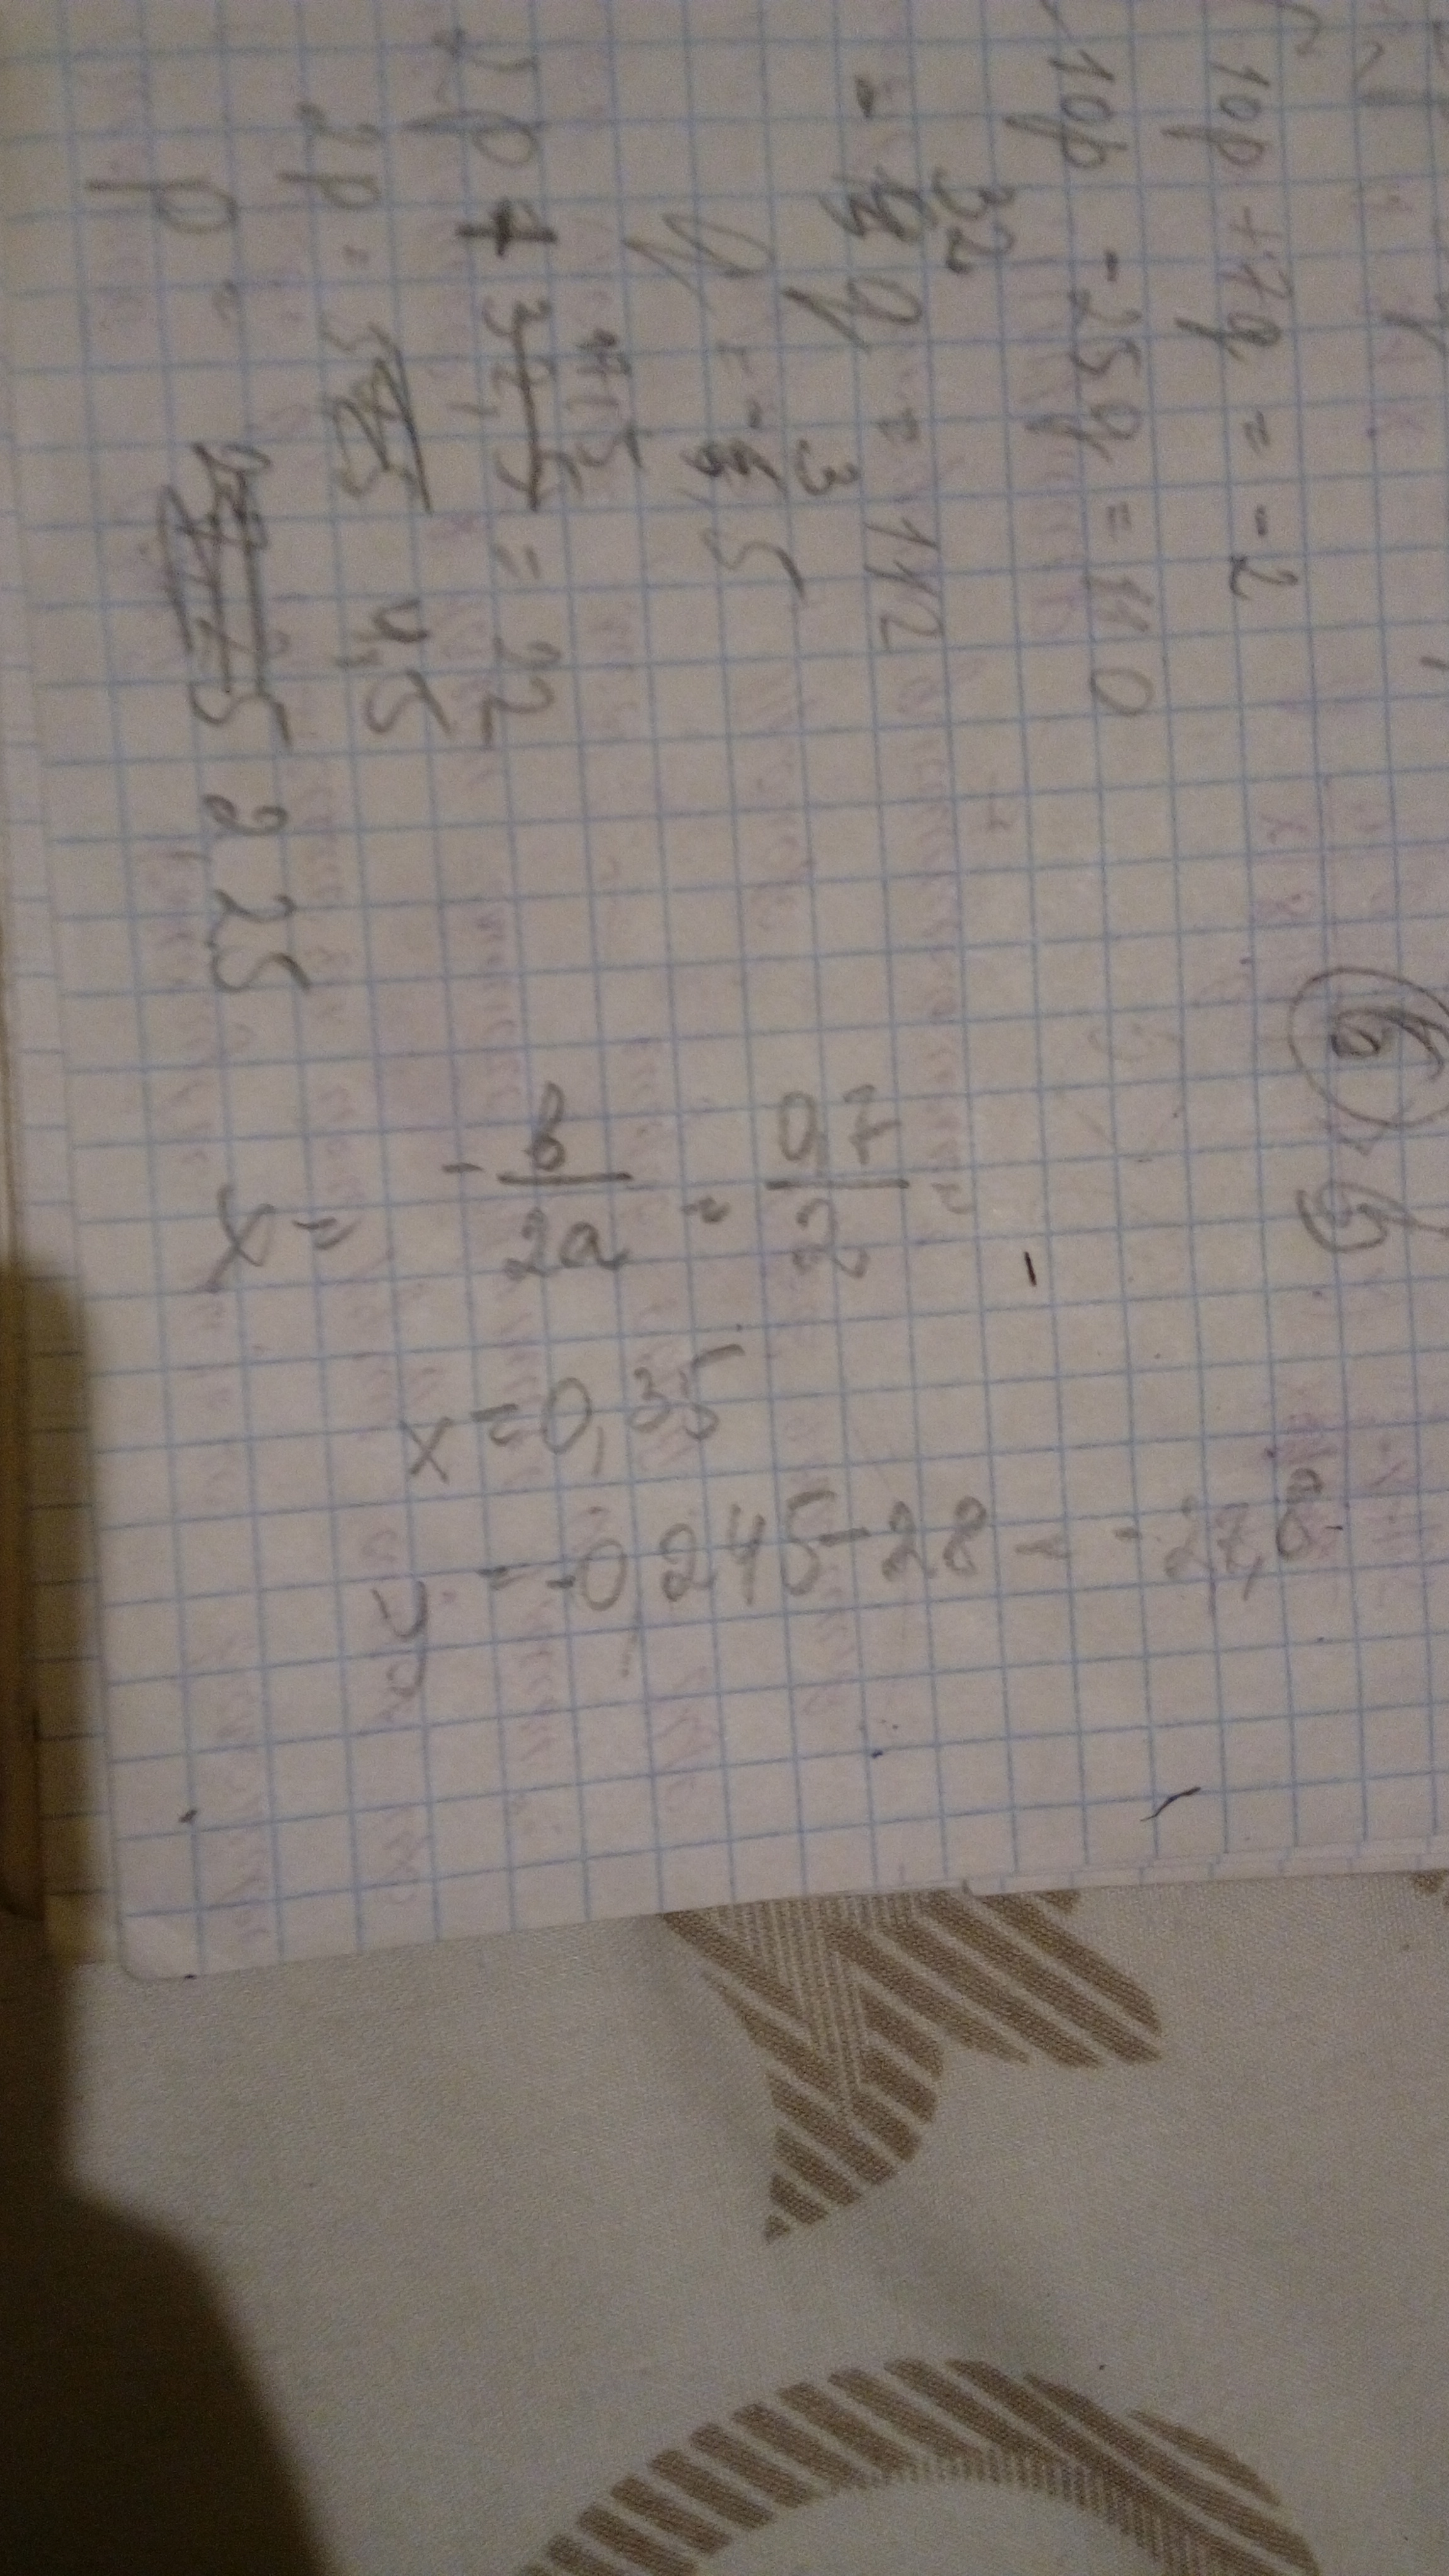 10p + 7q = -2
10p - 25q = 110
32
q = 112
q = -3,5
17,5
2p + = 22
2p = 4,5
p = 2,25
б)
x = - b/2a = 0,7/2 =
x = 0,35
y = -0,245 - 28 = -27,8